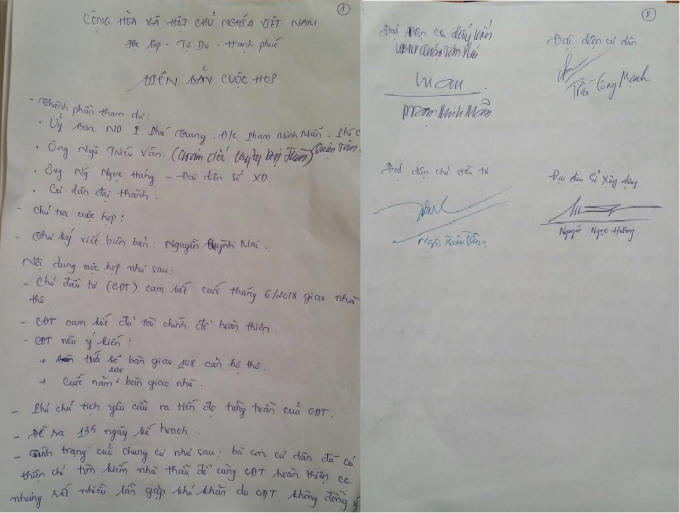 CỘNG HÒA XÃ HỘI CHỦ NGHĨA VIỆT NAM
Độc lập - Tự Do - Hạnh phúc
BIÊN BẢN CUỘC HỌP
- Thành phần tham dự:
. Uỷ ban ND P. Phú Trung: Đ/c Phạm Minh Mẫn - Phó C
. Ông Ngô Triều Vân. (Giám đốc
. Ông Ng Ngọc Hưng - Đại diện Sở XD.
. Cư dân đại thành.
- Chủ trì cuộc họp:
- Thư ký viết biên bản: Nguyễn Quỳnh Mai.
Nội dung cuộc họp như sau:
- Chủ đầu tư (CĐT) cam kết cuối tháng 6/2018 giao nhà
thô.
- CĐT cam kết đủ tài chính để hoàn thiện.
- CĐT nêu ý kiến:
+ bàn giao 108 căn hộ thô.
+ Cuối năm 2018 bàn giao nhà.
- Phó chủ tịch yêu cầu ra tiến độ từng tuần của CĐT.
- Đề ra 135 ngày kế hoạch.
- Tình trạng của chung cư như sau: bà con cư dân đã có
thiện chí tìm kiếm nhà thầu để cùng CĐT hoàn thiện cc
nhưng rất nhiều lần gặp khó khăn do CĐT không đồng ý
8
Đại diện
UBND Quận Tân Phú
Phạm Minh Mẫn
Đại diện cư dân
Trần Công Mạnh
Đại diện chủ đầu tư
Ngô Triều Vân
Đại diện Sở Xây dựng
Nguyễn Ngọc Hưng